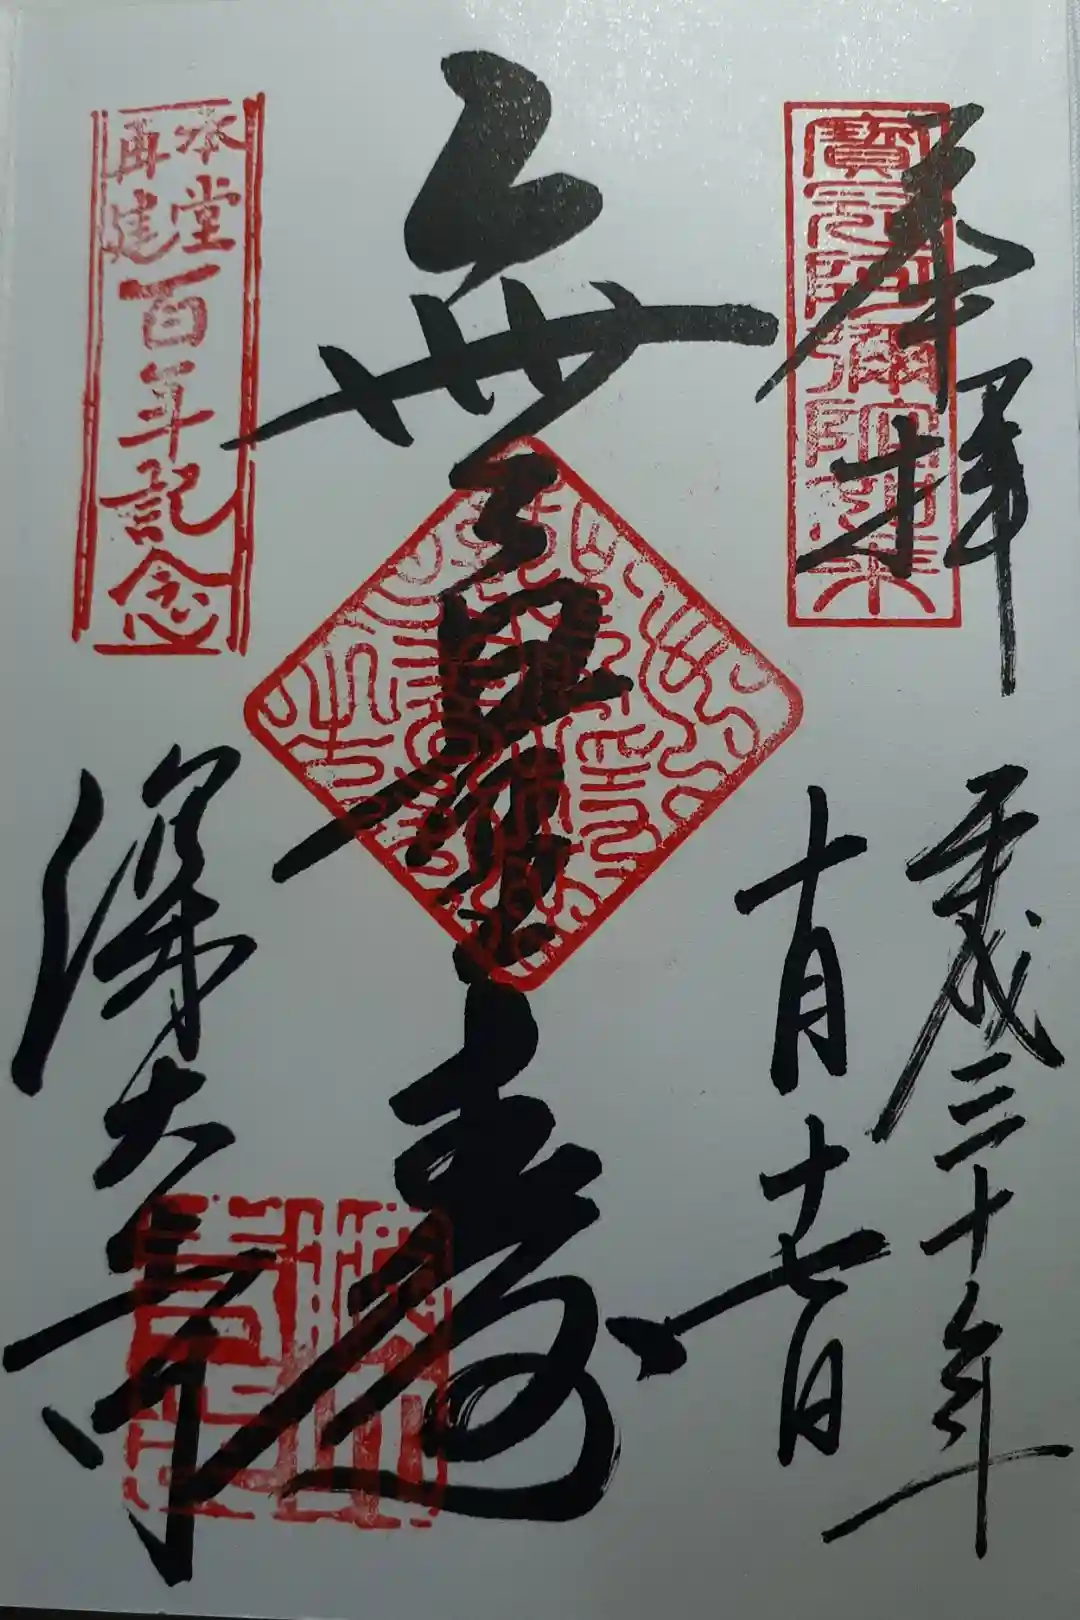 奉拝
寶冠阿彌陀如來
平成三十年
十月十七日
無量壽
本堂
再建
百年記念
深大寺